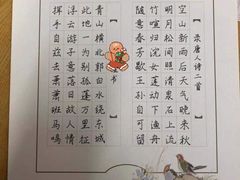 录唐人诗二首
空山新雨后天气晚来秋
明月松间照清泉石上流
竹喧归浣女莲动下渔舟
随意春芳歇王孙自可留
青山横北郭白水绕东城
此地一为别孤蓬万里征
浮云游子意落日故人情
挥手自兹去萧萧班马鸣
书